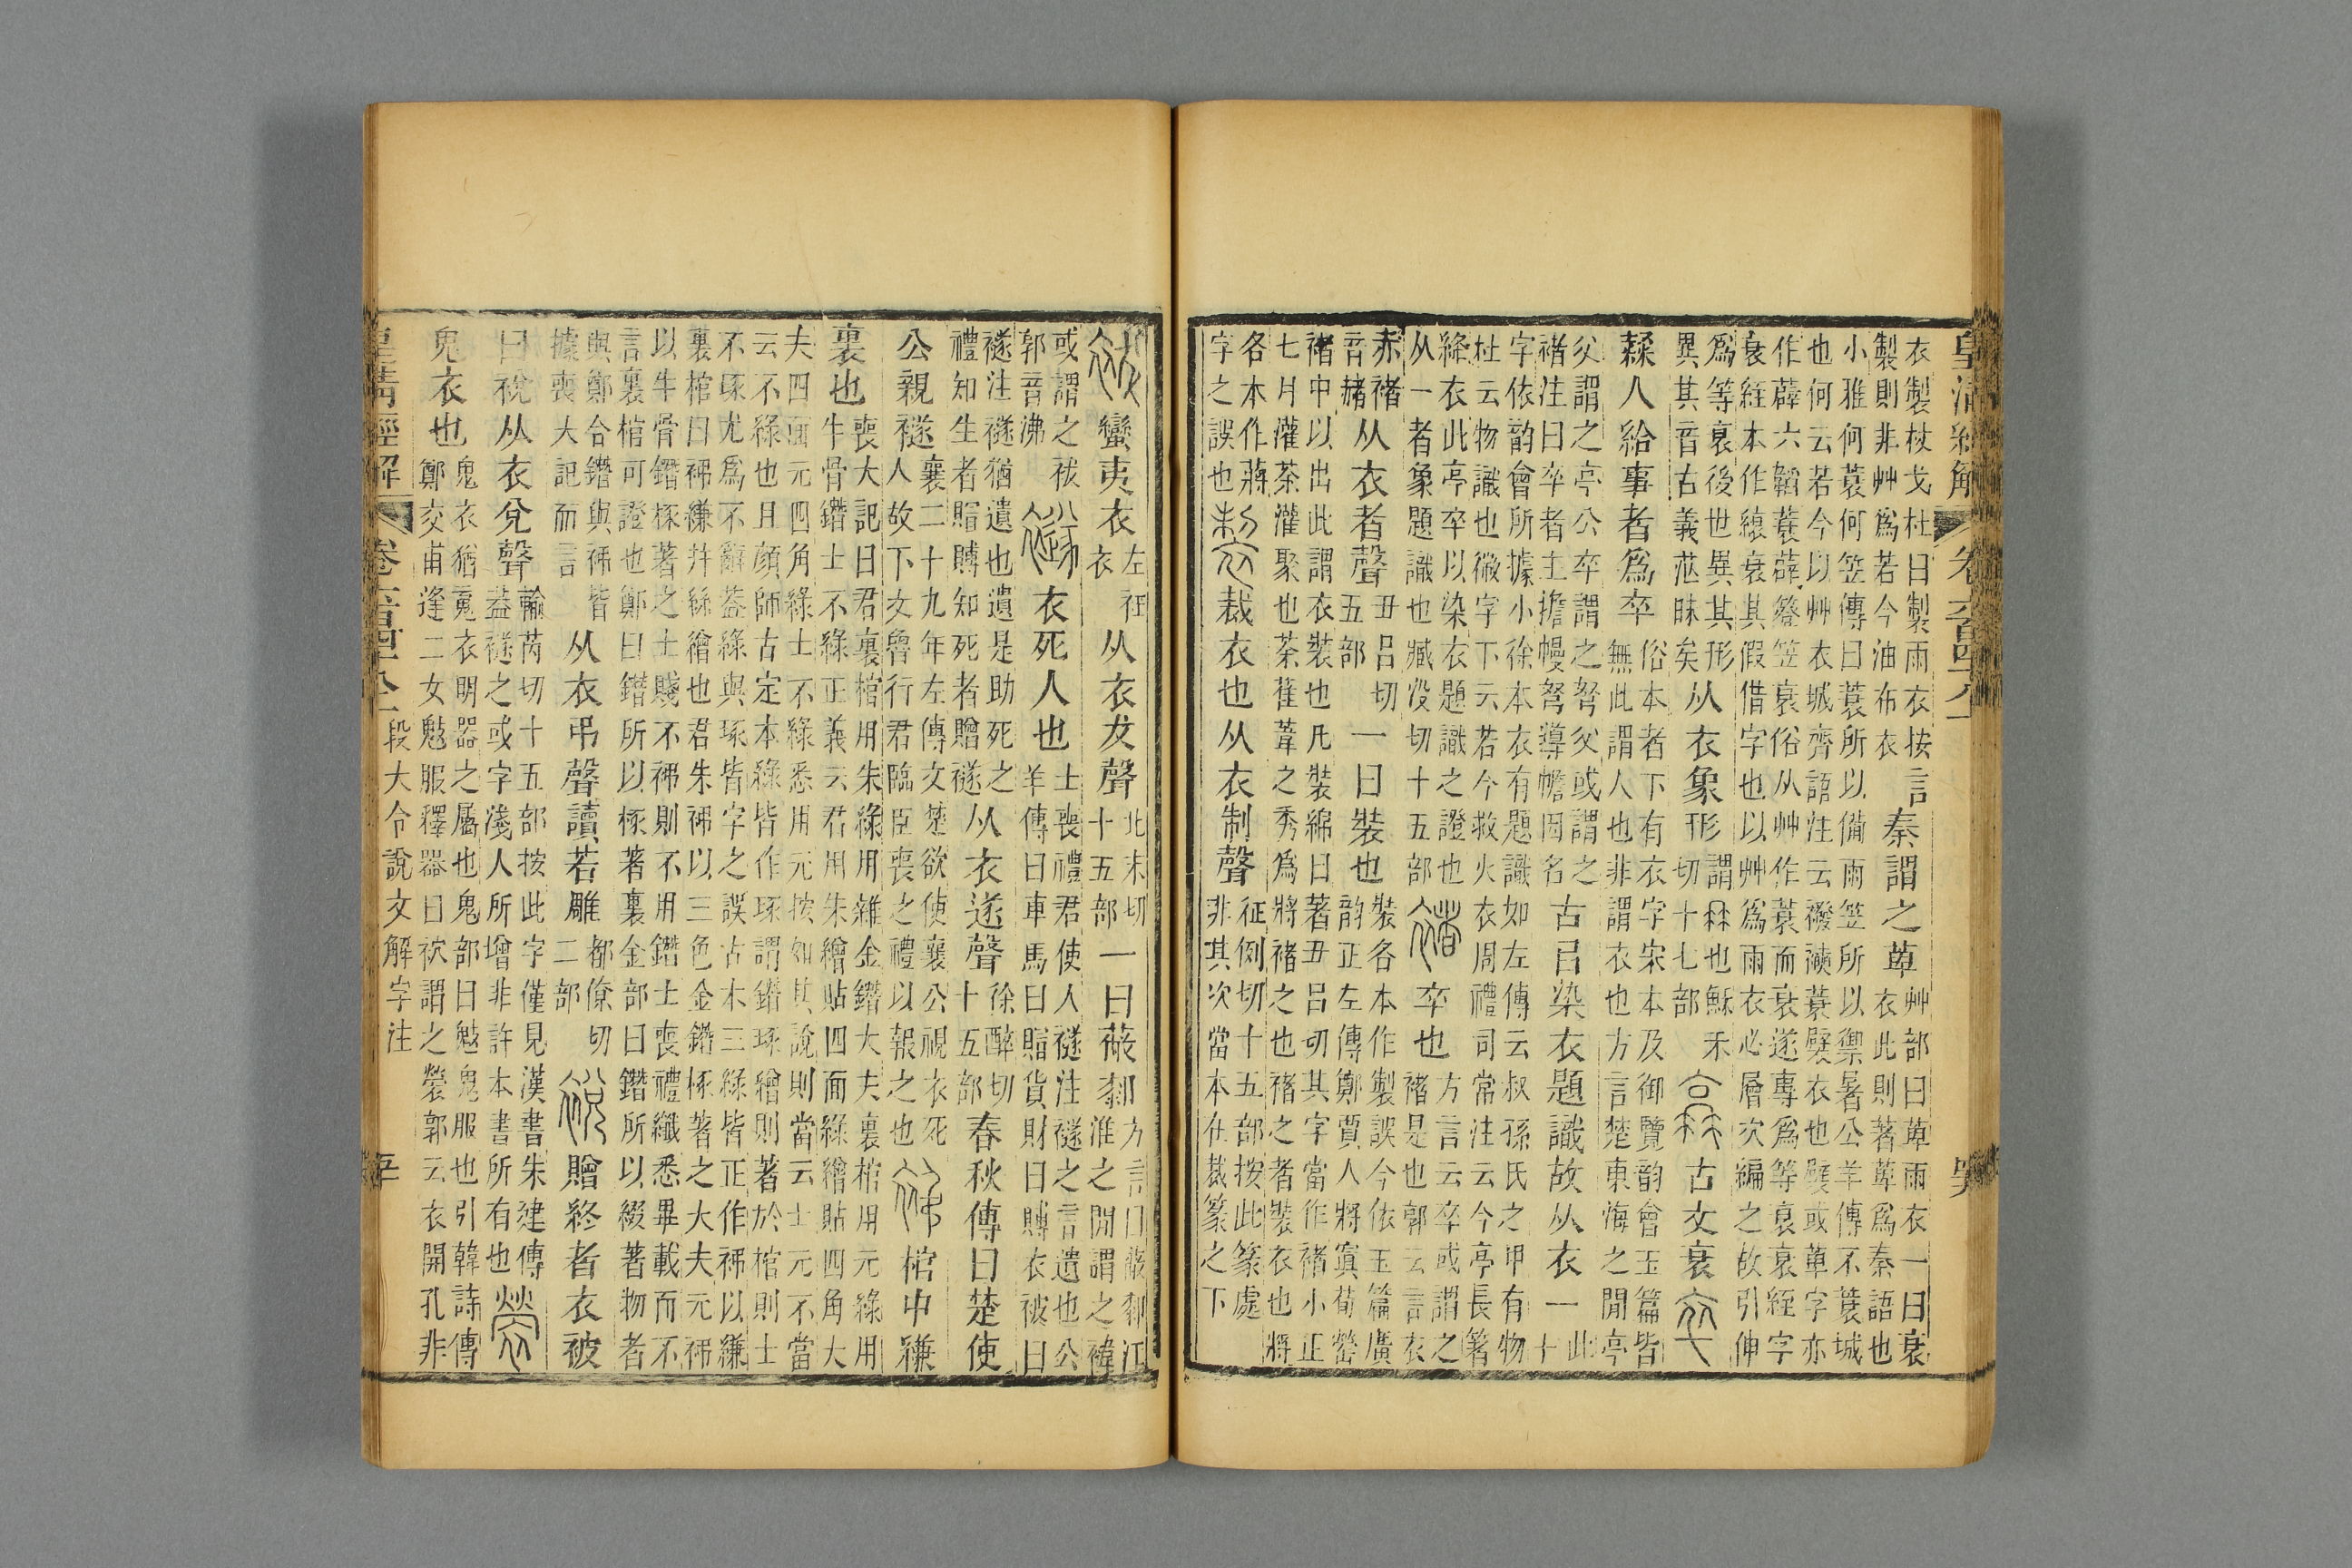 皇清經解 卷六百四十八上
衣製杖戈杜曰製雨衣按
製則非艸爲若今油布衣
言秦謂之萆
艸部曰萆雨衣一曰衰
衣此則著萆爲秦語也
小雅何蓑何笠傳曰蓑所以備雨笠所以禦暑公羊傳不蓑城
也何云若今以艸衣城齊語注云襏襫蓑襞衣也襞或萆字亦
作薜六韜蓑薜簦笠衰俗从艸作蓑而衰遂專爲等衰衰絰字
衰絰本作縗衰其假借字也以艸爲雨衣必層次編之故引伸
爲等衰後世異其形
異其音古義茫昧矣
从衣象形
謂冄也穌禾
切十七部
古文衰
卒
隸人給事者爲卒
俗本者下有衣字宋本及御覽韵會玉篇皆
無此謂人也非謂衣也方言楚東海之閒亭
父謂之亭公卒謂之弩父或謂之
褚注曰卒者主擔幔弩導幨因名
古㠯染衣題識故从衣一
此
十
字依韵會所據小徐本衣有題識如左傳云叔孫氏之甲有物
杜云物識也微字下云若今救火衣周禮司常注云今亭長箸
絳衣此亭卒以染衣題識之證也
从一者象題識也臧没切十五部
褚
卒也
方言云卒或謂之
褚是也郭云言衣
赤褚
音赭
从衣者聲
丑呂切
五部
一曰裝也
裝各本作製誤今依玉篇廣
韵正左傳鄭賈人將寘荀罃
褚中以出此謂衣裝也凡裝綿曰著丑呂切其字當作褚小正
七月灌荼灌聚也荼萑葦之秀爲將褚之也褚之者裝衣也將
各本作蔣
字之誤也
製
裁衣也从衣制聲
征例切十五部按此篆處
非其次當本在裁篆之下
袚
蠻夷衣
左衽
衣
从衣犮聲
北末切
十五部
一曰蔽厀
方言曰蔽厀江
淮之閒謂之褘
或謂之袚
郭音沸
襚
衣死人也
士喪禮君使人襚注襚之言遺也公
羊傳曰車馬曰賵貨財曰賻衣被曰
襚注襚猶遺也遺是助死之
禮知生者賵賻知死者贈襚
从衣遂聲
徐醉切
十五部
春秋傳曰楚使
公親襚
襄二十九年左傳文楚欲使襄公視衣死
人故下文魯行君臨臣喪之禮以報之也
棺中縑
裏也
喪大記曰君裏棺用朱綠用雜金鐕大夫裏棺用元綠用
牛骨鐕士不綠正義云君用朱繒貼四面綠繒貼四角大
夫四面元四角綠士不綠悉用元按如其說則當云士元不當
云不綠也且顔師古定本綠皆作琢謂鐕琢繒則著於棺則士
不琢尤爲不辭葢綠與琢皆字之誤古本三綠皆正作以縑
裏棺曰縑幷絲繒也君朱以三色金鐕椓著之大夫元
以牛骨鐕椓著之士賤不則不用鐕士喪禮纖悉畢載而不
言裏棺可證也鄭曰鐕所以椓著裏金部曰鐕所以綴著物者
與鄭合鐕與皆
據喪大記而言
从衣弔聲讀若雕
都僚切
二部
裞
贈終者衣被
曰裞从衣兌聲
輸芮切十五部按此字僅見漢書朱建傳
葢襚之或字淺人所增非許本書所有也
褮
鬼衣也
鬼衣猶䰟衣明器之屬也鬼部曰魃鬼服也引韓詩傳
鄭交甫逢二女魃服釋器曰袕謂之褮郭云衣開孔非
皇清經解 卷六百四十八上 段大令說文解字注